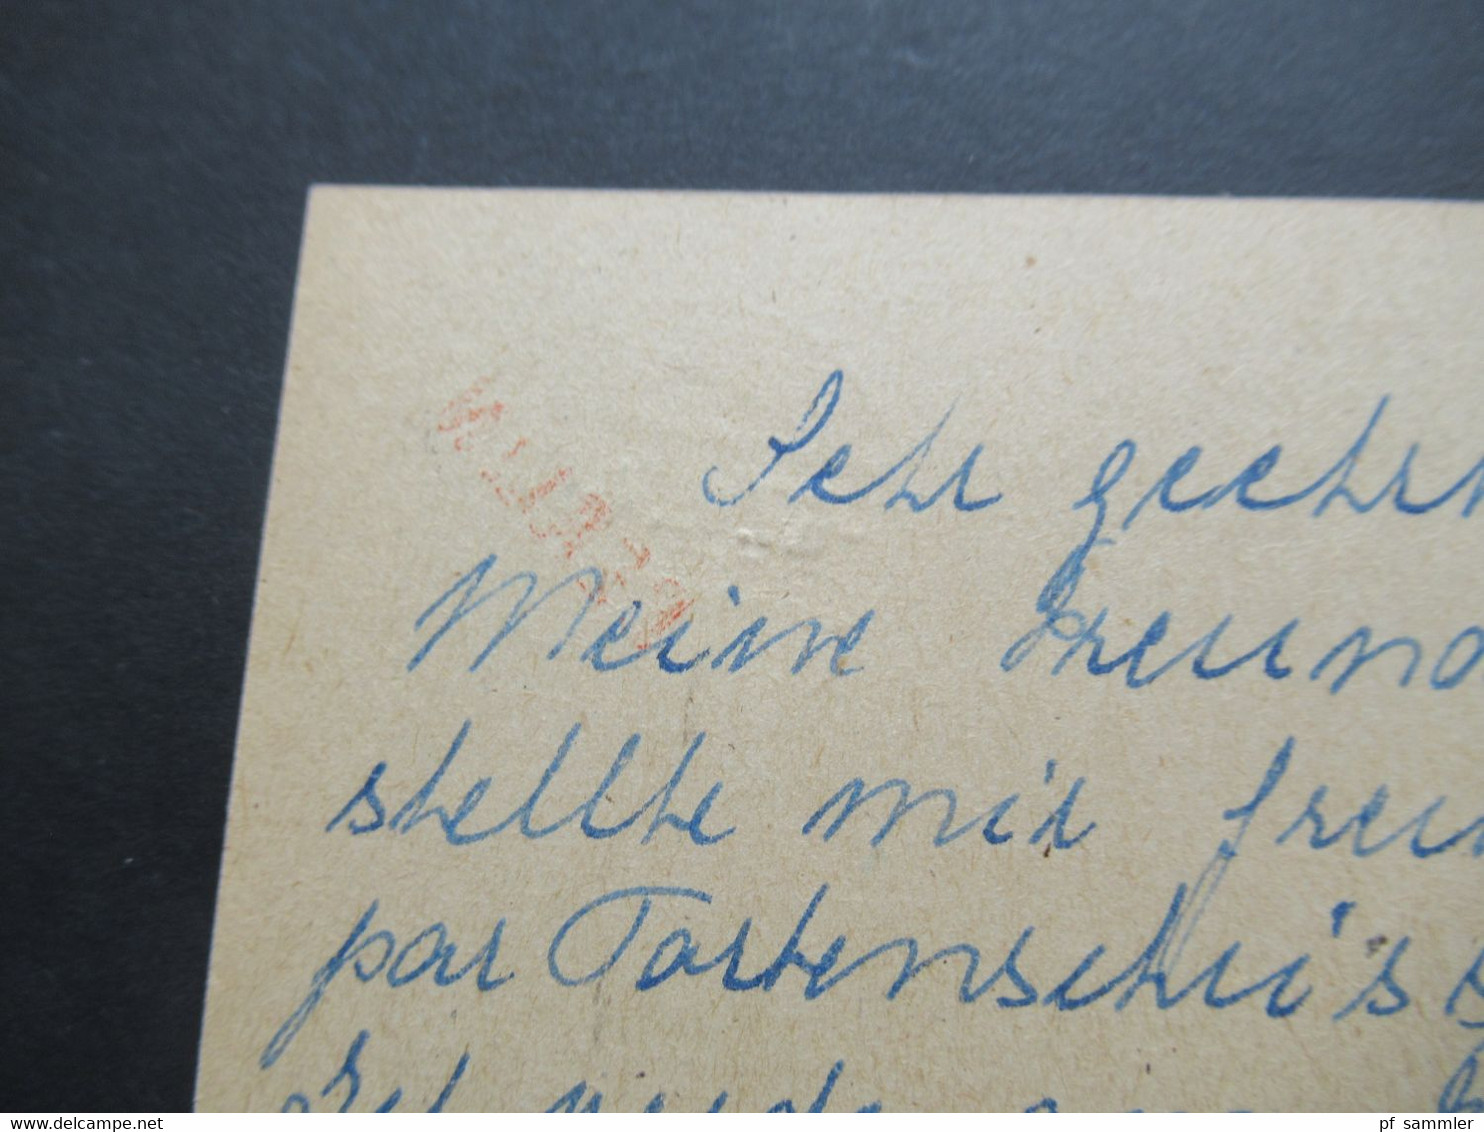 Sehr geehrt
Meine Freund
stellte mir freu
par Tortenschüss
www.delcampe.net
pf_sammler